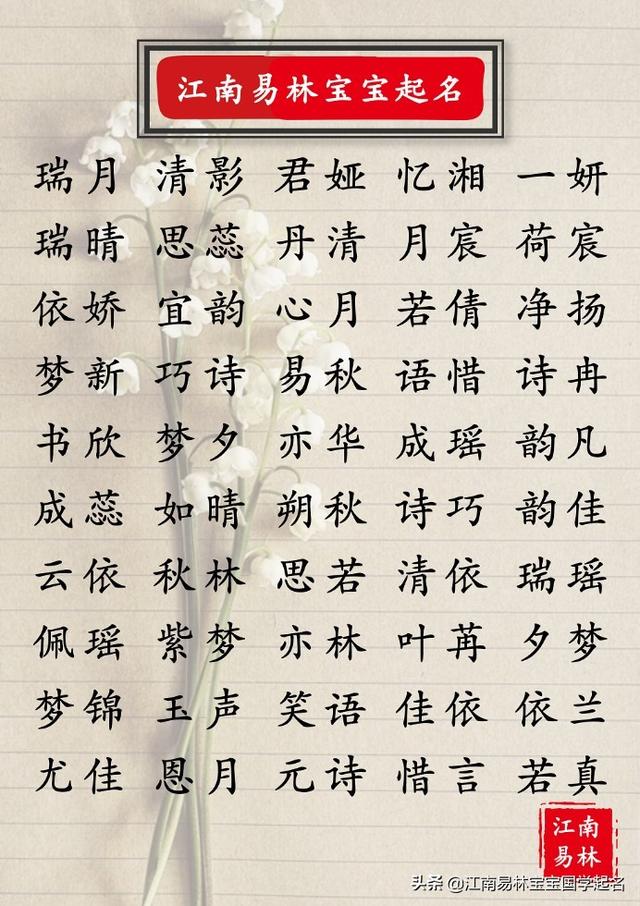 江南易林宝宝起名
瑞月 清影 君娅 忆湘 一妍
瑞晴 思蕊 丹清 月宸 荷宸
依娇 宜韵 心月 若倩 净扬
梦新 巧诗 易秋 语惜 诗冉
书欣 梦夕 亦华 成瑶 韵凡
成蕊 如晴 朔秋 诗巧 韵佳
云依 秋林 思若 清依 瑞瑶
佩瑶 紫梦 亦林 叶苒 夕梦
梦锦 玉声 笑语 佳依 依兰
尤佳 恩月 元诗 惜言 若真
江南
易林
头条 @江南易林宝宝国学起名